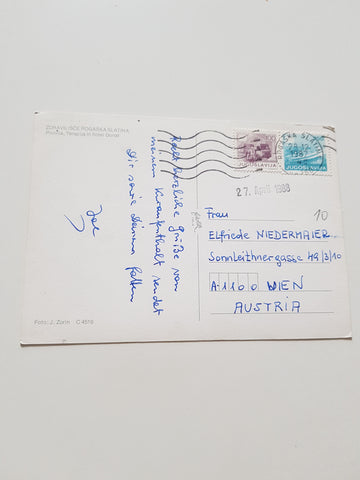 ZDRAVILIŠČE ROGAŠKA SLATINA
Pivnica, Terapija in hotel Donat
Recht herzliche Grüße von
meinem Kuraufenthalt sendet
Dir sowie Deinem Gatten
Foto: J. Zorin C 4519
JUGOSLAVIJA
JUGOSLAVIJA
SLATINA
27. April 1988
10
Frau
Elfriede NIEDERMAIER
Sonnleithnergasse 49/3/10
A 1100 WIEN
AUSTRIA